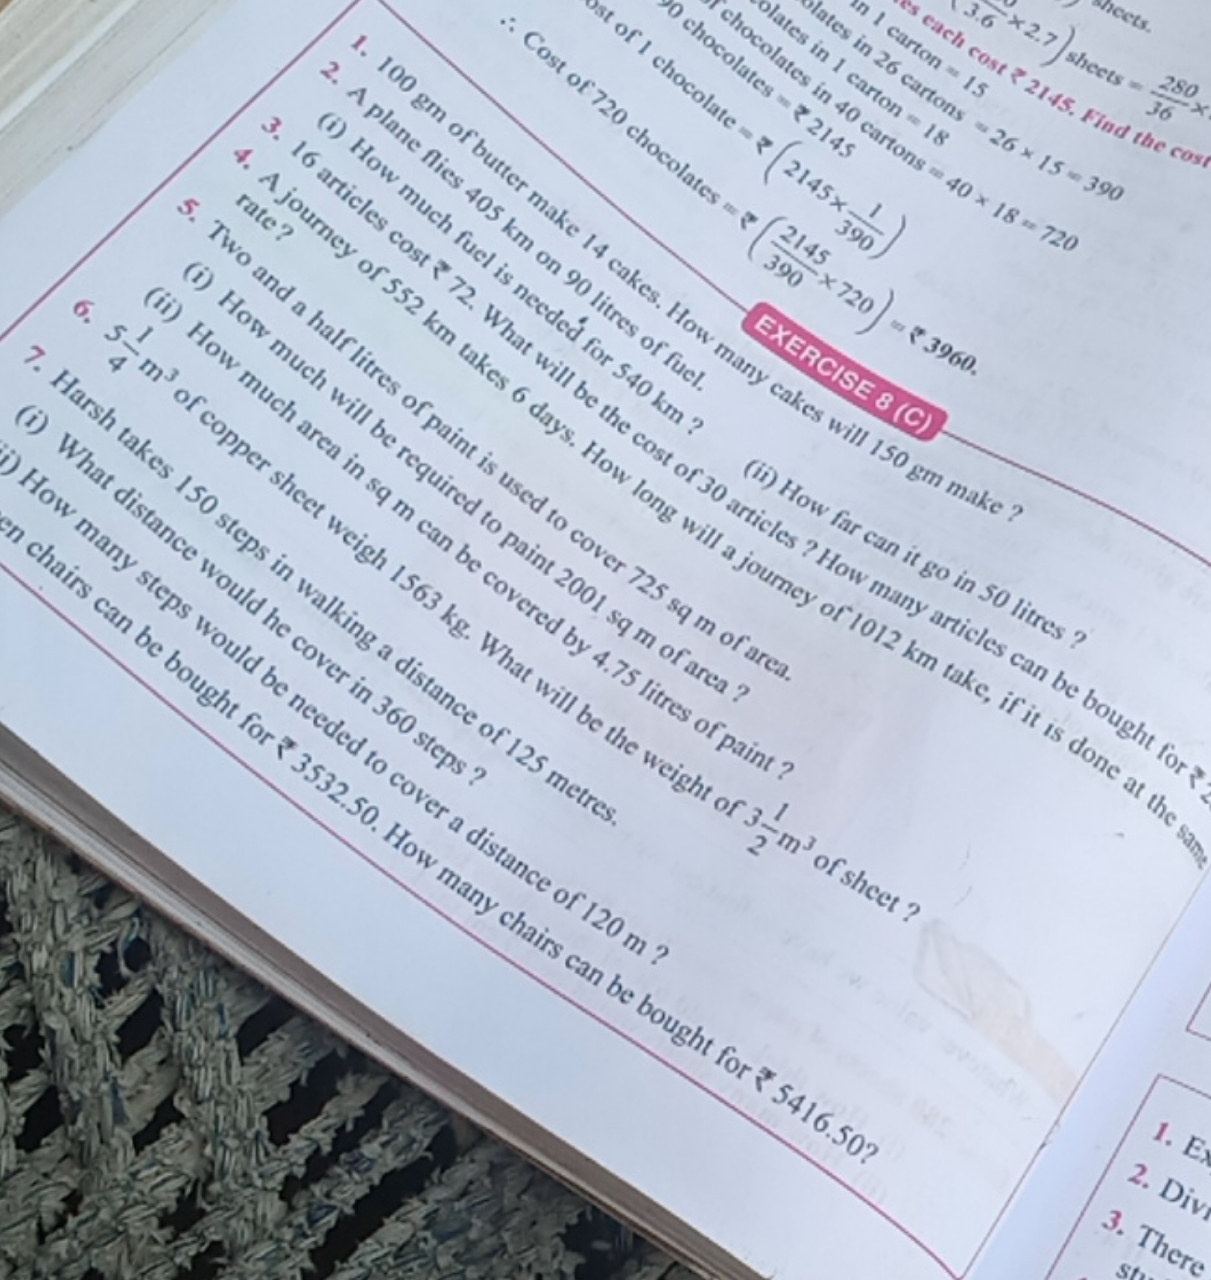 sheets.
3.6 × 2.7) sheets = 280/36 ×
es each cost ₹ 2145. Find the cost
in 1 carton = 15
olates in 26 cartons = 26 × 15 = 390
olates in 1 carton = 18
f chocolates in 40 cartons = 40 × 18 = 720
90 chocolates = ₹ 2145
ost of 1 chocolate = ₹ (2145 × 1/390)
∴ Cost of 720 chocolates = ₹ (2145/390 × 720) = ₹ 3960.
EXERCISE 8 (C)
1. 100 gm of butter make 14 cakes. How many cakes will 150 gm make ?
2. A plane flies 405 km on 90 litres of fuel.
(i) How much fuel is needed for 540 km ? (ii) How far can it go in 50 litres ?
3. 16 articles cost ₹ 72. What will be the cost of 30 articles ? How many articles can be bought for ₹
4. A journey of 552 km takes 6 days. How long will a journey of 1012 km take, if it is done at the same
rate ?
5. Two and a half litres of paint is used to cover 725 sq m of area.
(i) How much will be required to paint 2001 sq m of area ?
(ii) How much area in sq m can be covered by 4.75 litres of paint ?
6. 5 1/4 m³ of copper sheet weigh 1563 kg. What will be the weight of 3 1/2 m³ of sheet ?
7. Harsh takes 150 steps in walking a distance of 125 metres.
(i) What distance would he cover in 360 steps ?
i) How many steps would be needed to cover a distance of 120 m ?
en chairs can be bought for ₹ 3532.50. How many chairs can be bought for ₹ 5416.50?
1. Ex
2. Divi
3. There